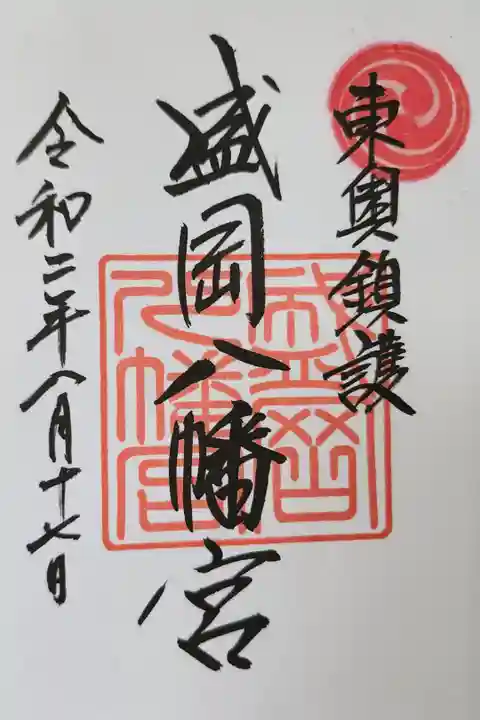 東奥鎮護
盛岡八幡宮
盛岡八幡宮
令和二年八月十七日